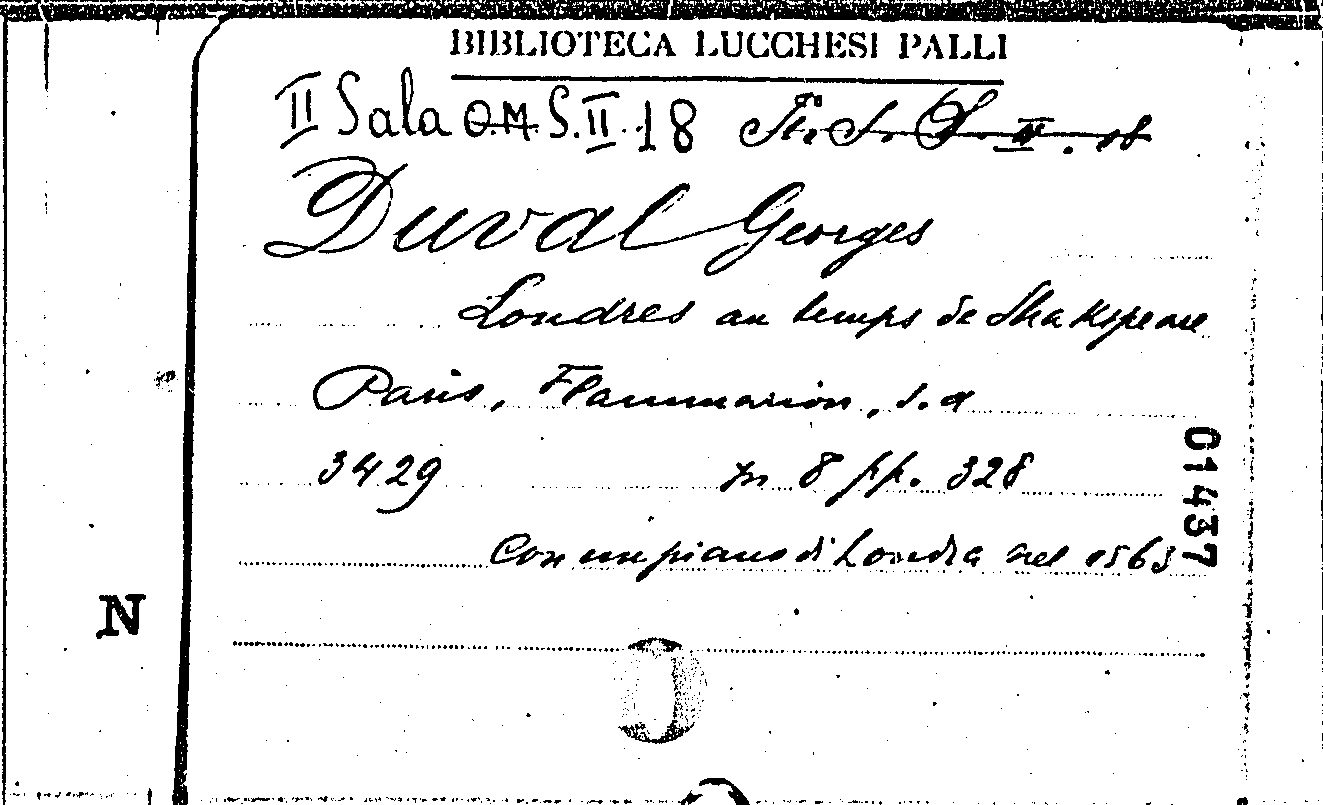 BIBLIOTECA LUCCHESI PALLI
II Sala O.M. S.II.18 St. S. S. II. 18
Duval Georges
Londres au temps de Shakspeare
Paris, Flammarion, s.d
3429 in 8 pp. 328
Con un piano di Londra nel 1563
01437
N